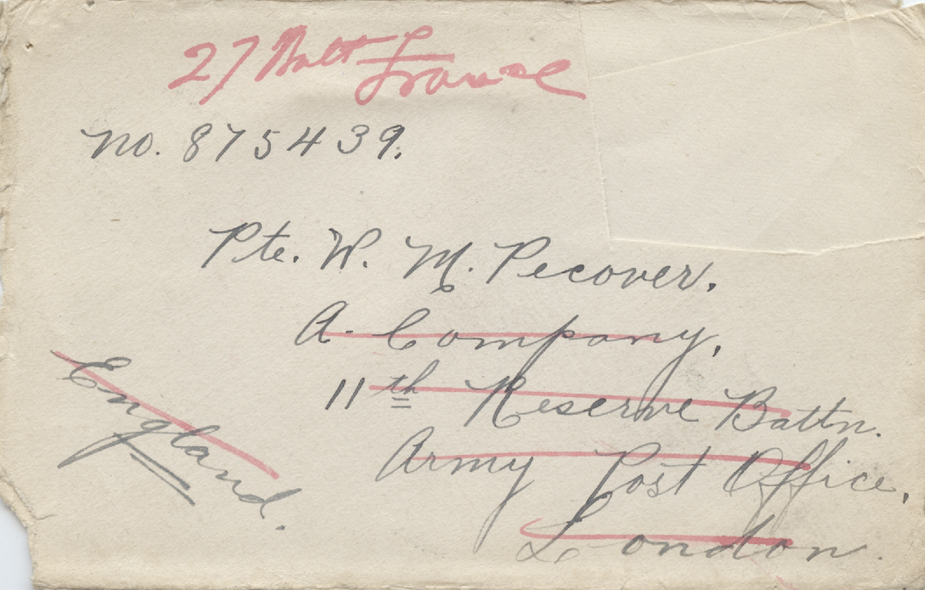 27 Batt France
No. 875439.
Pte. W. M. Pecover.
A. Company,
11th Reserve Battn.
Army Post Office,
London.
England.